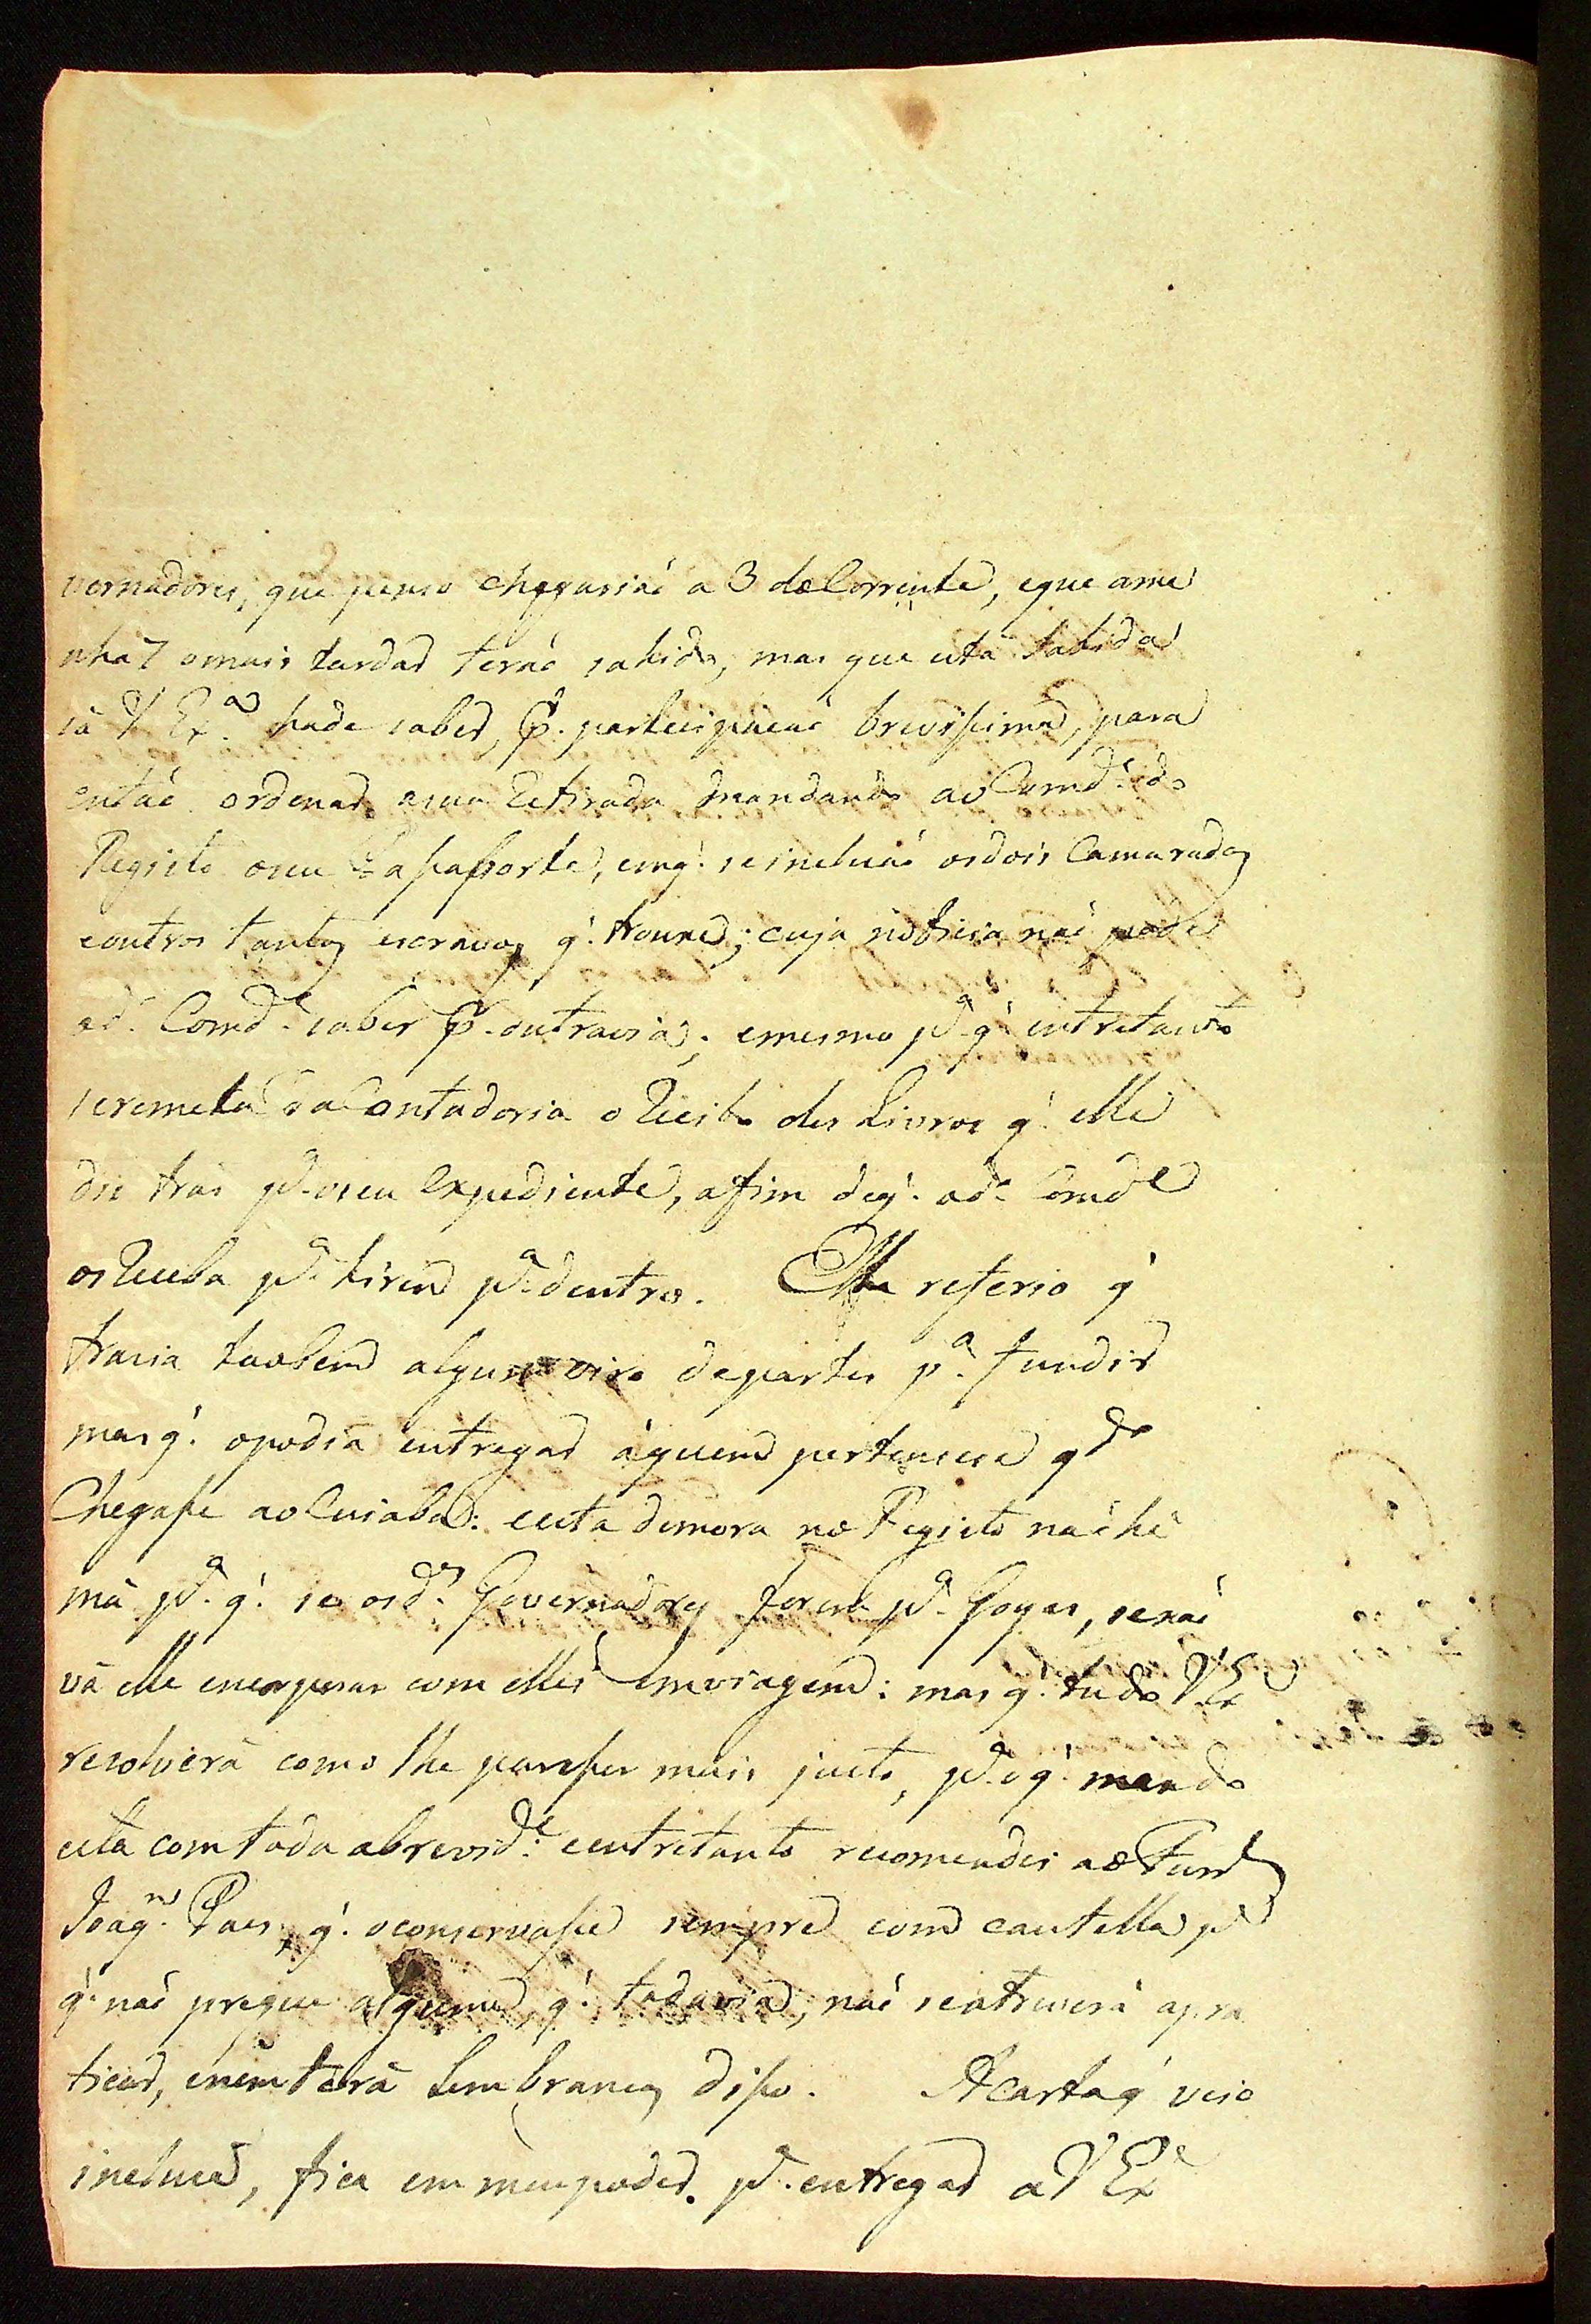 vernadores, que penso chegariaõ a 3 do Corrente, eque ama
nhã 7 omais tardar teraõ sahido, mas que esta sahida
só V Ex.ª hade saber, p.r participacaõ brevissima, para
entaõ ordenar asua Retirada mandando ao Comd.e do
Registo oseu Pasaporte, emq.' seincluaõ osdois Camaradas
eoutros tantos escravos q.' trouxe; cuja noticia naõ pode
od.º Comd.e saber p.r outravia; emesmo p.ª q.' entretanto
seremeta da Contadoria o Recibo dos Livros q.' elle
dis tras p.ª oseu Expediente, afim deq.' od.º Comd.e
osReceba p.ª hirem p.ª dentro. Elle referio q.'
trazia taobem algum oiro departes p.ª fundir
mas q.' opodia entregar áquem pertencese q.do
Chegase ao Cuiabá: eesta demora no Registo naõ hé
má p.ª q.' se osd.os Governadores forem p.ª Goyas, senaõ
vá elle encorporar com elles emviagem: mas q.' tudo V Ex
resolverá como lhe pareser mais justo, p.ª oq.' mando
esta comtoda abrevid.e: eentretanto recomendei ao Fur.el
Joaq.m Paes, q.' oconservase sempre com cautella p.ª
q.' naõ pregue alguma, q.' todavia, naõ seatreverá apra
ticar, enem terá Lembranças diso. Acarta q.' veio
incluza, fica em meupoder p.ª entregar aV Ex